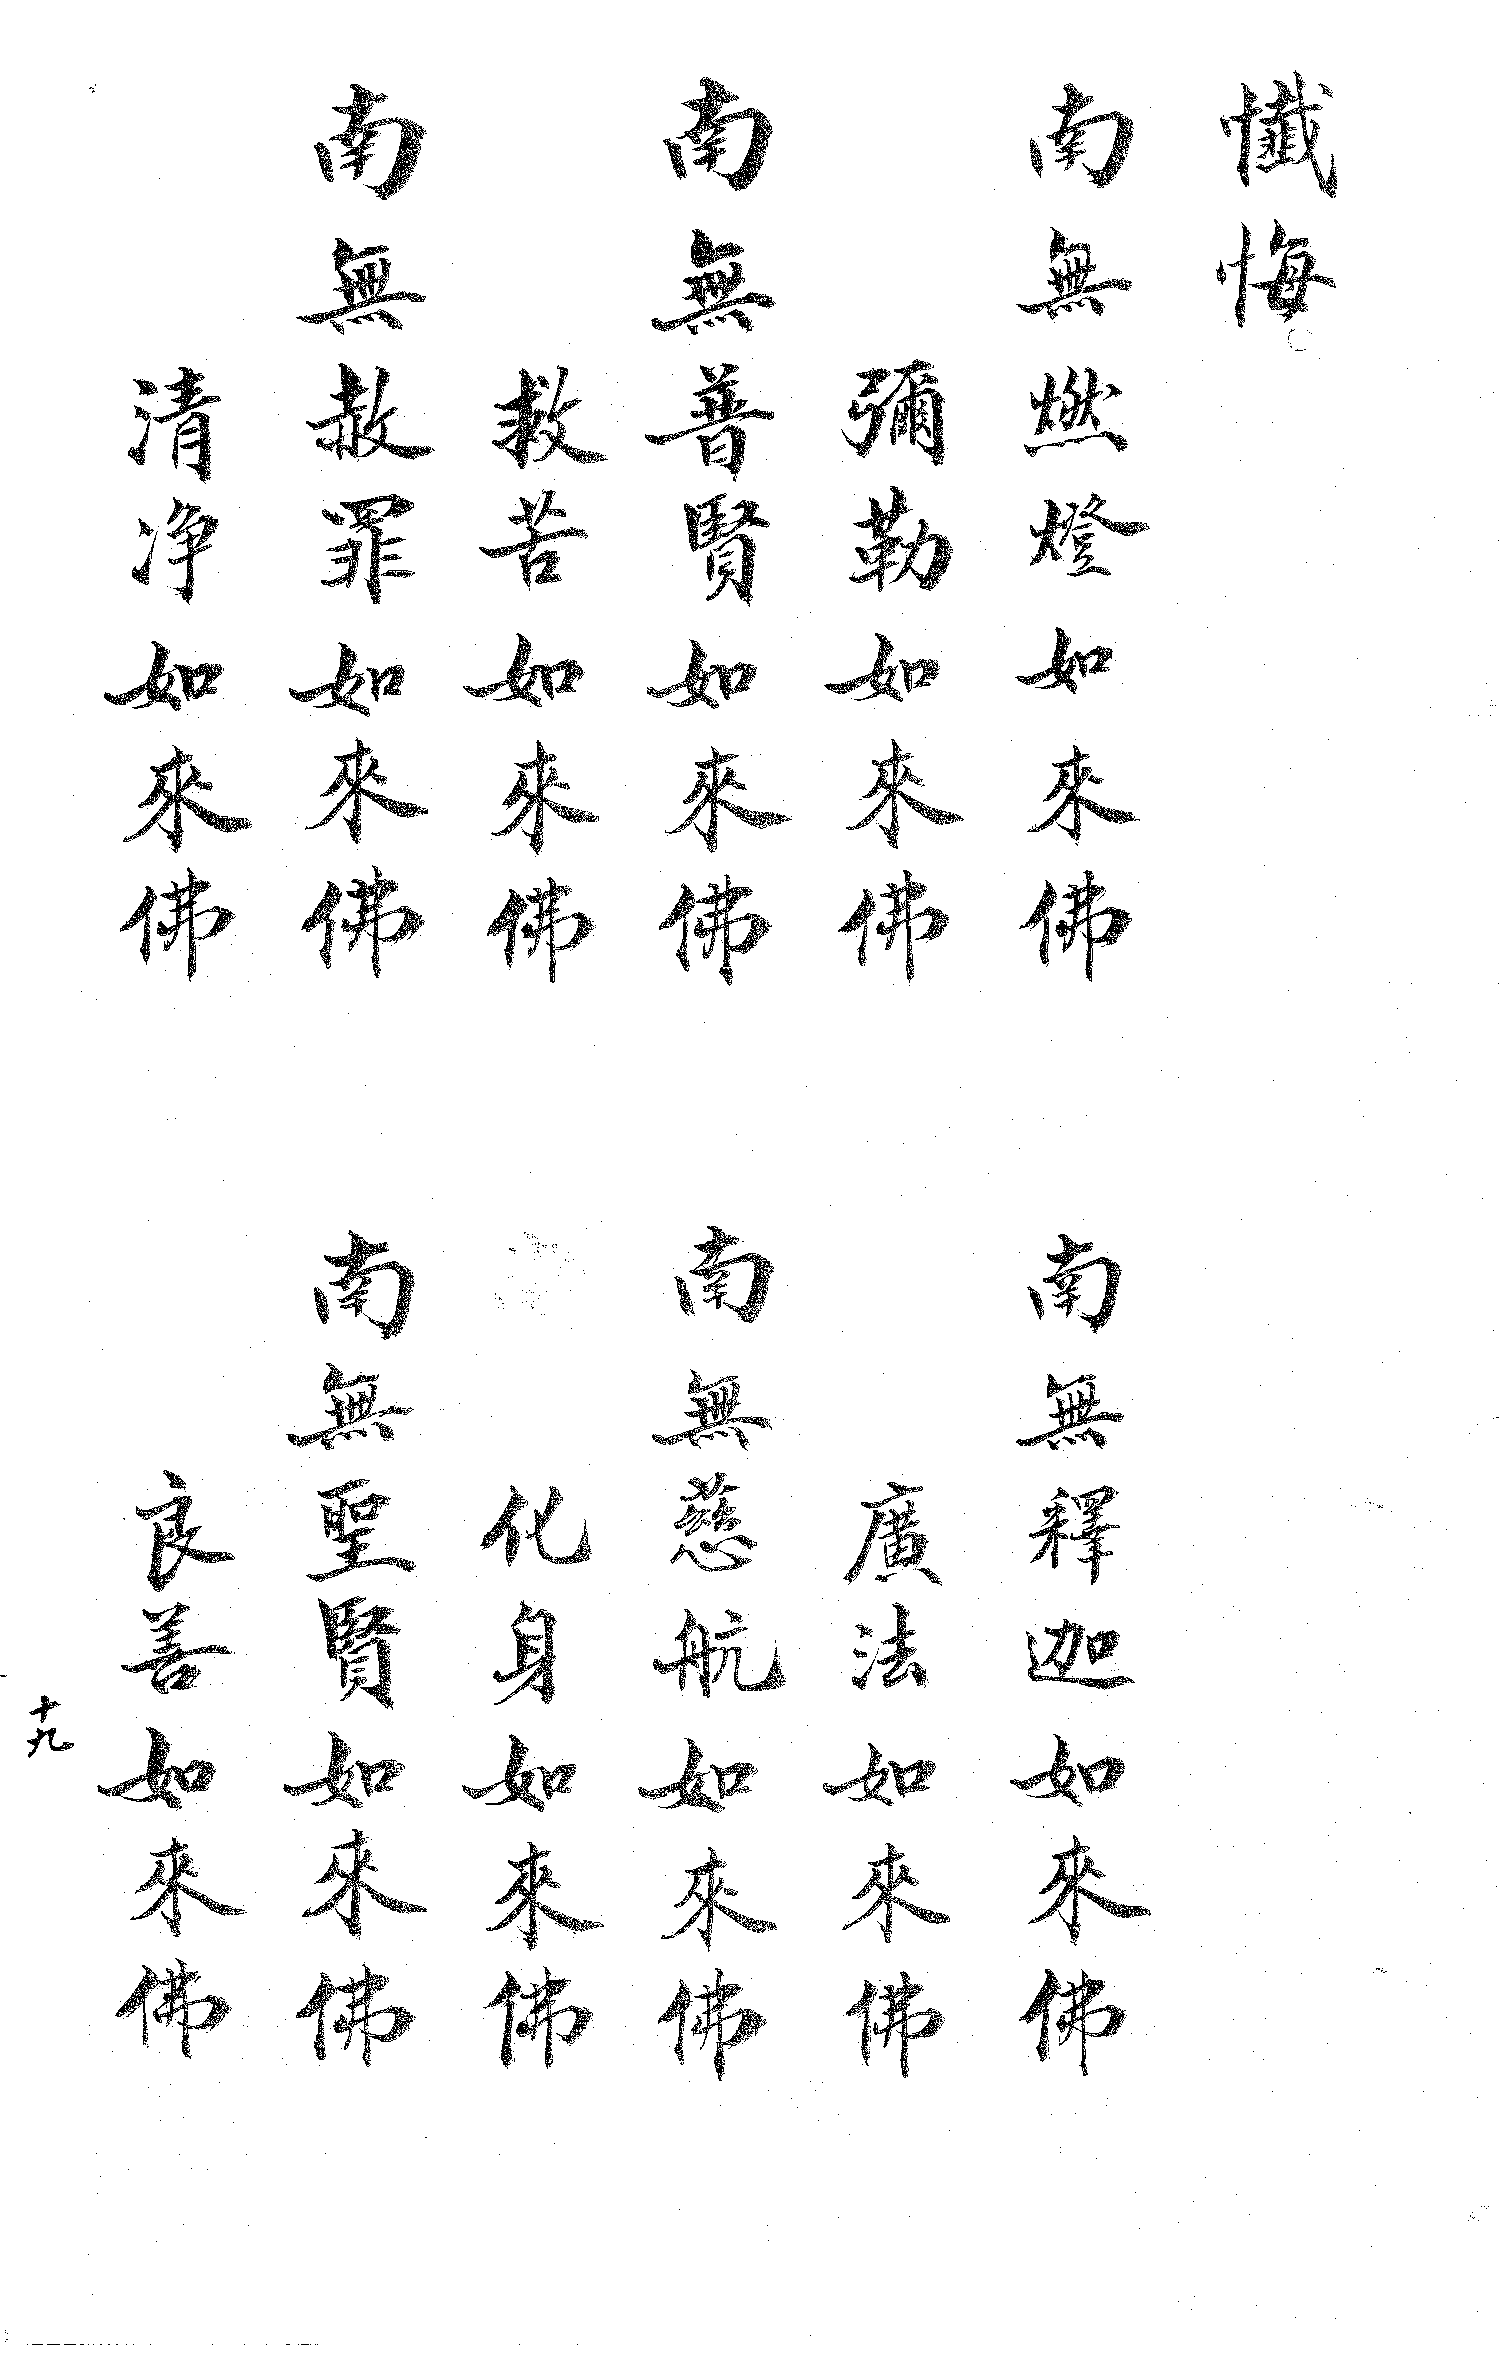 懺悔
南無燃燈如來佛
南無釋迦如來佛
彌勒如來佛
廣法如來佛
南無普賢如來佛
南無慈航如來佛
救苦如來佛
化身如來佛
南無赦罪如來佛
南無聖賢如來佛
清净如來佛
良善如來佛
十九